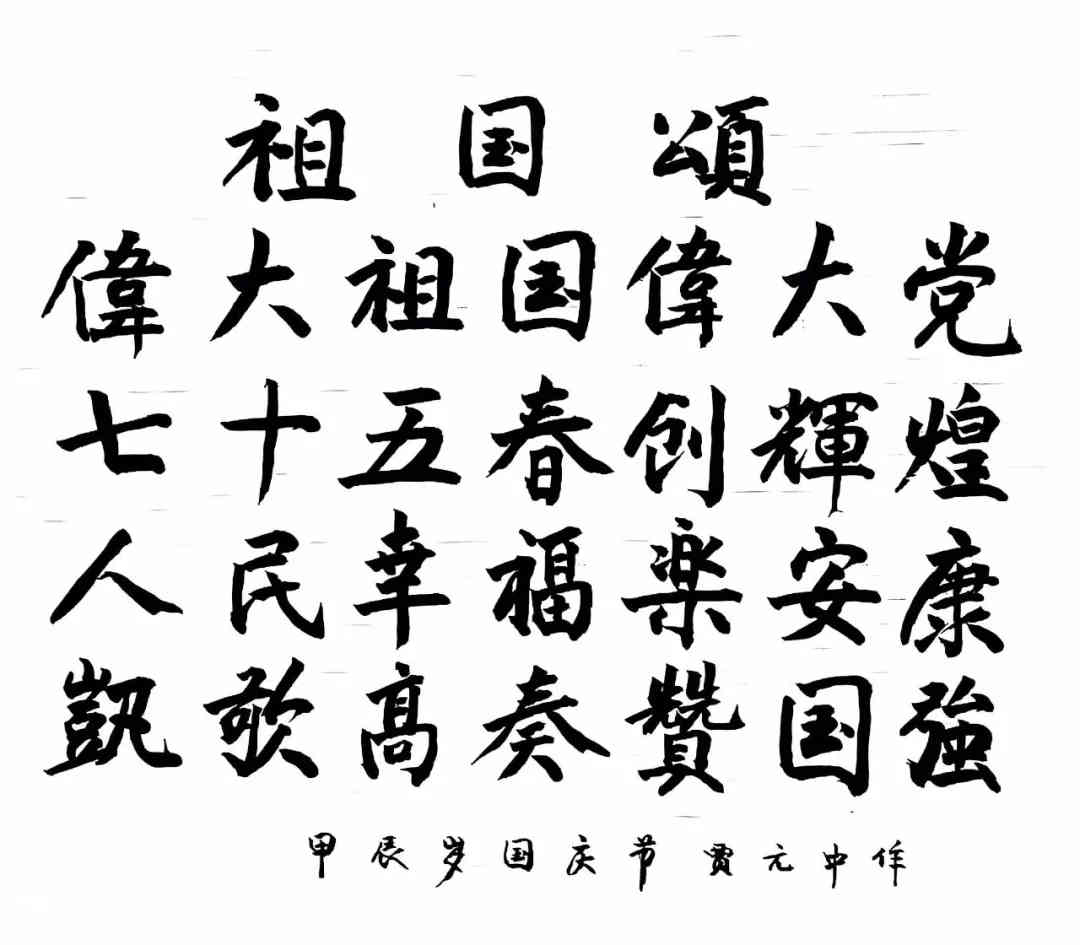 祖国頌
偉大祖国偉大党
七十五春创輝煌
人民幸福楽安康
凱歌高奏贊国強
甲辰岁国庆节贾元中作